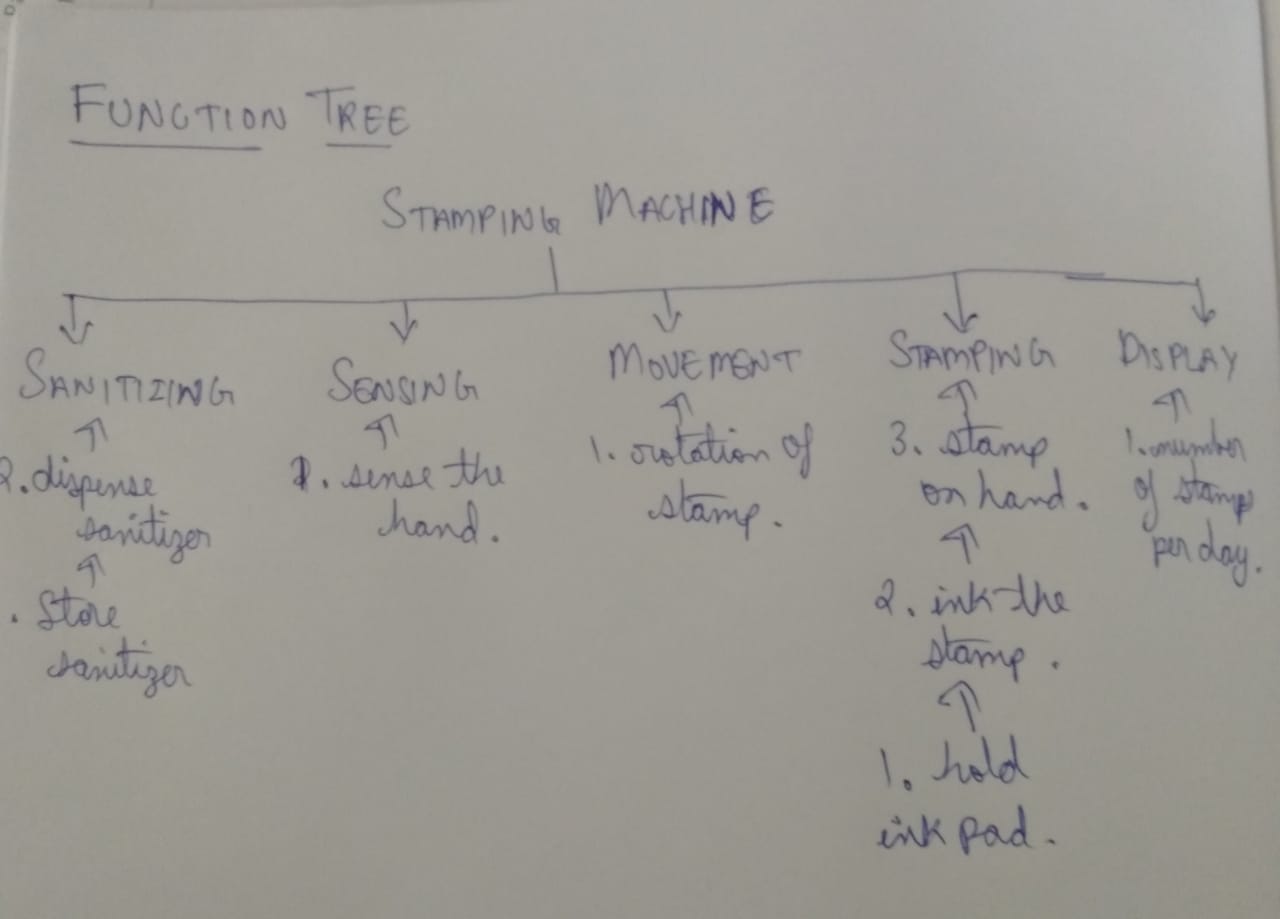 FUNCTION TREE
STAMPING MACHINE
SANITIZING
2. dispense
sanitizer
. Store
sanitizer
SENSING
1. sense the
hand.
MOVEMENT
1. rotation of
stamp.
STAMPING
3. stamp
on hand.
2. ink the
stamp.
1. hold
ink pad.
DISPLAY
1. number
of stamps
per day.